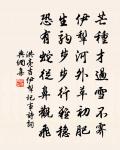 芒種才過雪不霽
伊犁河外草初肥
生駒步步行難穩
恐有蛇從鼻觀飛
洪亮吉伊犁記事詩詞
典網集